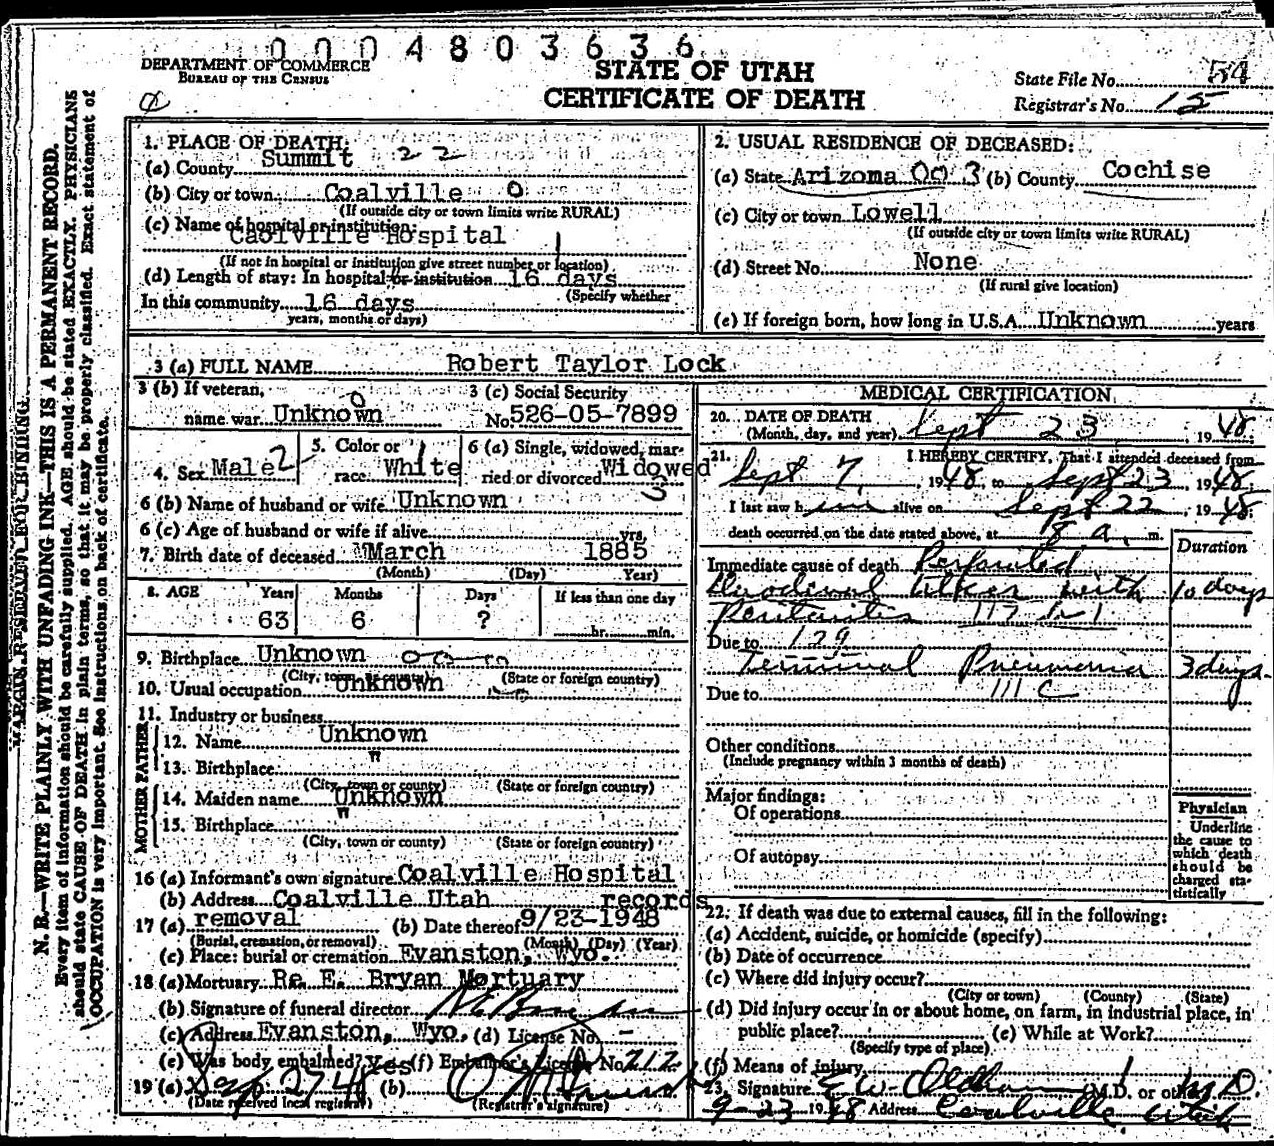 0 0 0 4 8 0 3 6 3 6
DEPARTMENT OF COMMERCE
BUREAU OF THE CENSUS
STATE OF UTAH
CERTIFICATE OF DEATH
State File No. 54
Registrar's No. 15
MARGIN RESERVED FOR BINDING
N. B.—WRITE PLAINLY WITH UNFADING INK—THIS IS A PERMANENT RECORD.
Every item of information should be carefully supplied. AGE should be stated EXACTLY. PHYSICIANS
should state CAUSE OF DEATH in plain terms, so that it may be properly classified. Exact statement of
OCCUPATION is very important. See instructions on back of certificate.
1. PLACE OF DEATH:
(a) County Summit 22
(b) City or town Coalville 0
(If outside city or town limits write RURAL)
(c) Name of hospital or institution:
Caolville Hospital 1
(If not in hospital or institution give street number or location)
(d) Length of stay: In hospital or institution 16 days
(Specify whether
In this community 16 days
years, months or days)
2. USUAL RESIDENCE OF DECEASED:
(a) State Arizoma 003 (b) County Cochise
(c) City or town Lowell
(If outside city or town limits write RURAL)
(d) Street No. None
(If rural give location)
(e) If foreign born, how long in U.S.A. Unknown years
3 (a) FULL NAME Robert Taylor Lock
3 (b) If veteran, 0
name war Unknown
3 (c) Social Security
No. 526-05-7899
4. Sex Male 2
5. Color or 1
race White
6 (a) Single, widowed, mar-
ried or divorced Widowed
3
6 (b) Name of husband or wife Unknown
6 (c) Age of husband or wife if alive yrs.
7. Birth date of deceased March 1885
(Month) (Day) Year)
8. AGE Years Months Days If less than one day
63 6 ? hr. min.
9. Birthplace Unknown
(City, town or county) (State or foreign country)
10. Usual occupation Unknown
11. Industry or business
FATHER
12. Name Unknown
13. Birthplace "
(City, town or county) (State or foreign country)
MOTHER
14. Maiden name Unknown
15. Birthplace "
(City, town or county) (State or foreign country)
16 (a) Informant's own signature Coalville Hospital
(b) Address Coalville Utah records
17 (a) removal (b) Date thereof 9/23-1948
(Burial, cremation, or removal) (Month) (Day) (Year)
(c) Place: burial or cremation Evanston, Wyo.
18 (a) Mortuary Re. E. Bryan Mortuary
(b) Signature of funeral director
(c) Address Evanston, Wyo. (d) License No. -
(e) Was body embalmed? Yes (f) Embalmer's License No. 212
19 (a) Sep 27 48 (b)
(Date received local registrar) (Registrar's signature)
MEDICAL CERTIFICATION
20. DATE OF DEATH
(Month, day, and year) Sept 23, 1948.
21. I HEREBY CERTIFY, That I attended deceased from
Sept 7, 1948, to Sept 23, 1948.
I last saw him alive on Sept 22, 1948.
death occurred on the date stated above, at 8 a. m.
Duration
Immediate cause of death Perforated
Duodinal Ulcer with 10 days
Peritonitis 117 b 1
Due to 129
Terminal Pneumonia 3 days.
Due to 111 C
Other conditions
(Include pregnancy within 3 months of death)
Major findings:
Of operations
Of autopsy
Physician
Underline
the cause to
which death
should be
charged sta-
tistically
22. If death was due to external causes, fill in the following:
(a) Accident, suicide, or homicide (specify)
(b) Date of occurrence
(c) Where did injury occur?
(City or town) (County) (State)
(d) Did injury occur in or about home, on farm, in industrial place, in
public place? (e) While at Work?
(Specify type of place)
(f) Means of injury
23. Signature E W Oldham (M.D. or other) M.D.
9-23 1948 Address Coalville Utah